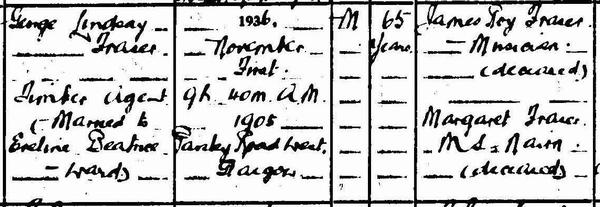 George Lindsay
Fraser
Timber Agent
(Married to
Eveline Beatrice
Ward)
1936.
November
First.
9h. 40m. A.M.
1905
Paisley Road West.
Glasgow
M
65
Years
James Roy Fraser
Musician.
(deceased)
Margaret Fraser
M.S. Nairn
(deceased)